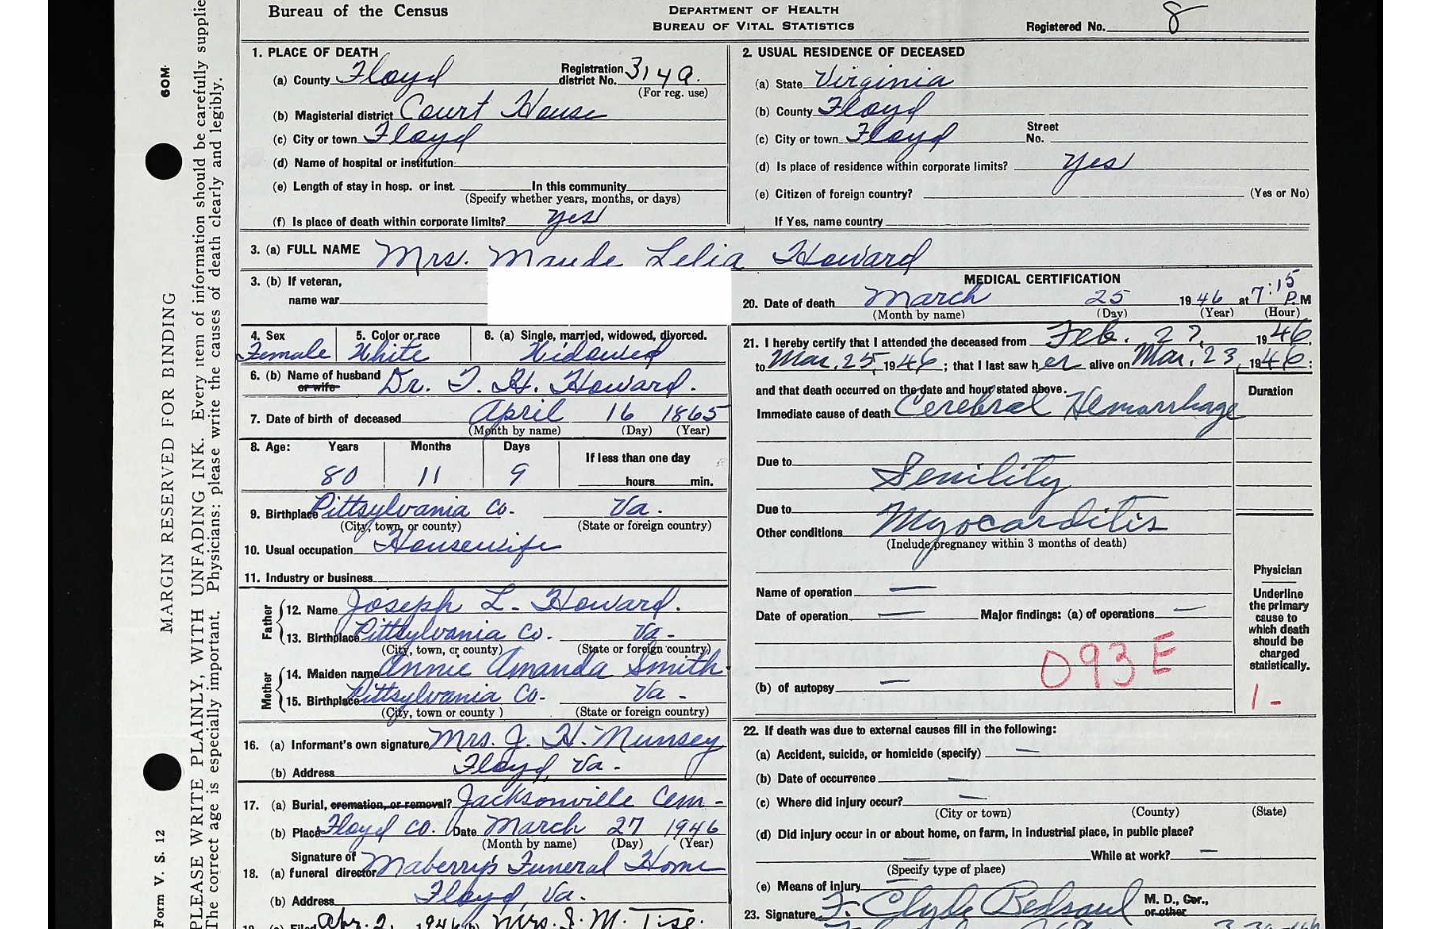 Bureau of the Census
DEPARTMENT OF HEALTH
BUREAU OF VITAL STATISTICS
Registered No. 8
60M
MARGIN RESERVED FOR BINDING
Form V. S. 12
PLEASE WRITE PLAINLY, WITH UNFADING INK. Every item of information should be carefully supplie
The correct age is especially important. Physicians: please write the causes of death clearly and legibly.
1. PLACE OF DEATH
(a) County Floyd Registration district No. 314A.
(For reg. use)
(b) Magisterial district Court House
(c) City or town Floyd
(d) Name of hospital or institution
(e) Length of stay in hosp. or inst. In this community
(Specify whether years, months, or days)
(f) Is place of death within corporate limits? yes
2. USUAL RESIDENCE OF DECEASED
(a) State Virginia
(b) County Floyd
(c) City or town Floyd Street No.
(d) Is place of residence within corporate limits? yes
(e) Citizen of foreign country? (Yes or No)
If Yes, name country
3. (a) FULL NAME Mrs. Maude Lelia Howard
3. (b) If veteran,
name war
4. Sex 5. Color or race 6. (a) Single, married, widowed, divorced.
Female White Widowed
6. (b) Name of husband or wife Dr. T. H. Howard.
7. Date of birth of deceased April 16 1865
(Month by name) (Day) (Year)
8. Age: Years Months Days If less than one day
80 11 9 hours min.
9. Birthplace Pittsylvania Co. Va.
(City, town, or county) (State or foreign country)
10. Usual occupation Housewife
11. Industry or business
Father
12. Name Joseph L. Howard.
13. Birthplace Pittsylvania Co. Va.
(City, town, or county) (State or foreign country)
Mother
14. Maiden name Annie Amanda Smith
15. Birthplace Pittsylvania Co. Va.
(City, town or county ) (State or foreign country)
16. (a) Informant's own signature Mrs. J. H. Munsey
(b) Address Floyd, Va.
17. (a) Burial, cremation, or removal? Jacksonville Cem.
(b) Place Floyd Co. Date March 27 1946
(Month by name) (Day) (Year)
Signature of
18. (a) funeral director Maberry's Funeral Home
(b) Address Floyd, Va.
Filed Apr. 2, 1946 (b) Mrs. S. M. Tise.
MEDICAL CERTIFICATION
20. Date of death March 25 1946 at 7:15 P.M
(Month by name) (Day) (Year) (Hour)
21. I hereby certify that I attended the deceased from Feb. 27, 1946
to Mar. 25, 1946; that I last saw her alive on Mar. 23, 1946;
and that death occurred on the date and hour stated above.
Duration
Immediate cause of death Cerebral Hemorrhage
Due to Senility
Due to
Other conditions Myocarditis
(Include pregnancy within 3 months of death)
Name of operation —
Date of operation — Major findings: (a) of operations —
093E
(b) of autopsy —
Physician
Underline the primary cause to which death should be charged statistically.
1-
22. If death was due to external causes fill in the following:
(a) Accident, suicide, or homicide (specify) —
(b) Date of occurrence —
(c) Where did injury occur? —
(City or town) (County) (State)
(d) Did injury occur in or about home, on farm, in industrial place, in public place?
— While at work? —
(Specify type of place)
(e) Means of Injury —
23. Signature F. Clyde Bedsaul M. D., Cor., or other